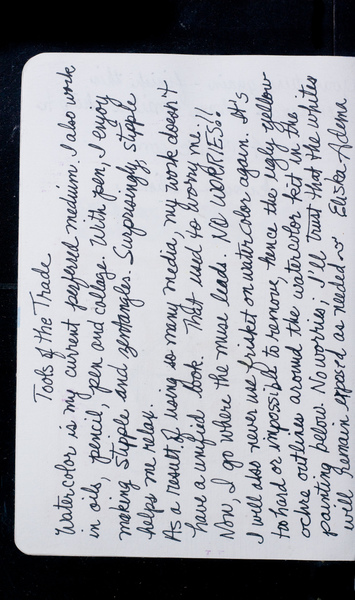 Tools of the Trade
Watercolor is my current preferred medium. I also work
in oils, pencil, pen and collage. With pen, I enjoy
making Stipple and zentangles. Surprisingly, stipple
helps me relax.
As a result of using so many media, my work doesn't
have a unified look. That used to worry me.
Now, I go where the muse leads. NO WORRIES!!
I will also never use frisket on watercolor again. It's
to hard or impossible to remove, hence the ugly yellow
ochre outlines around the watercolor feet in the
painting below. No worries; I'll trust that the whites
will remain exposed as needed~